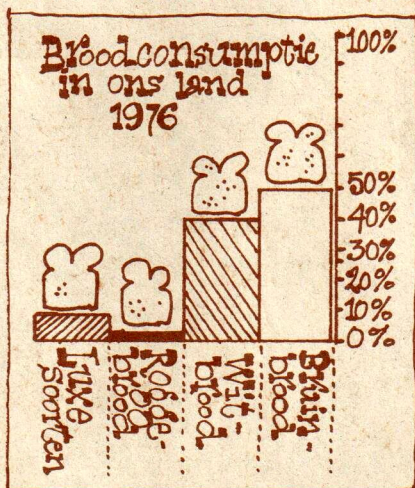 Broodconsumptie
in ons land
1976
100%
50%
40%
30%
20%
10%
0%
Luxe
soorten
Rogge-
brood
Wit-
brood
Bruin-
brood